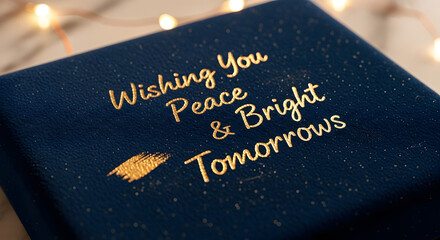 Wishing You
Peace
& Bright
Tomorrows